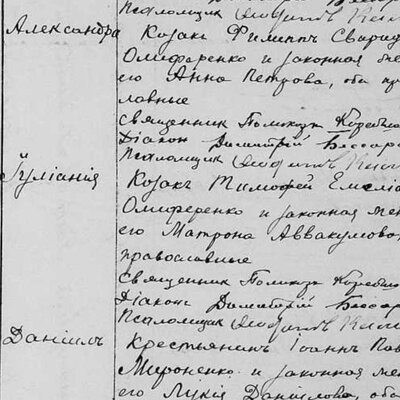 Псаломщик
Александра
Козакъ Филиппъ Свирид
Олиференко и законная же
его Анна Петрова, оба пра
лавные
Священник Поликарп
Діакон Димитрій Бессар
Псаломщик
Іуліанія
Козакъ Тимофей Емелiа
Олиференко и законная же
его Матрона Аввакумова
православные
Священник Поликарп
Діаконъ Димитрій Бессар
Псаломщик
Даніилъ
Крестьянинъ Іоаннъ Пав
Мироненко и законная же
его Лукія Даніилова, оба